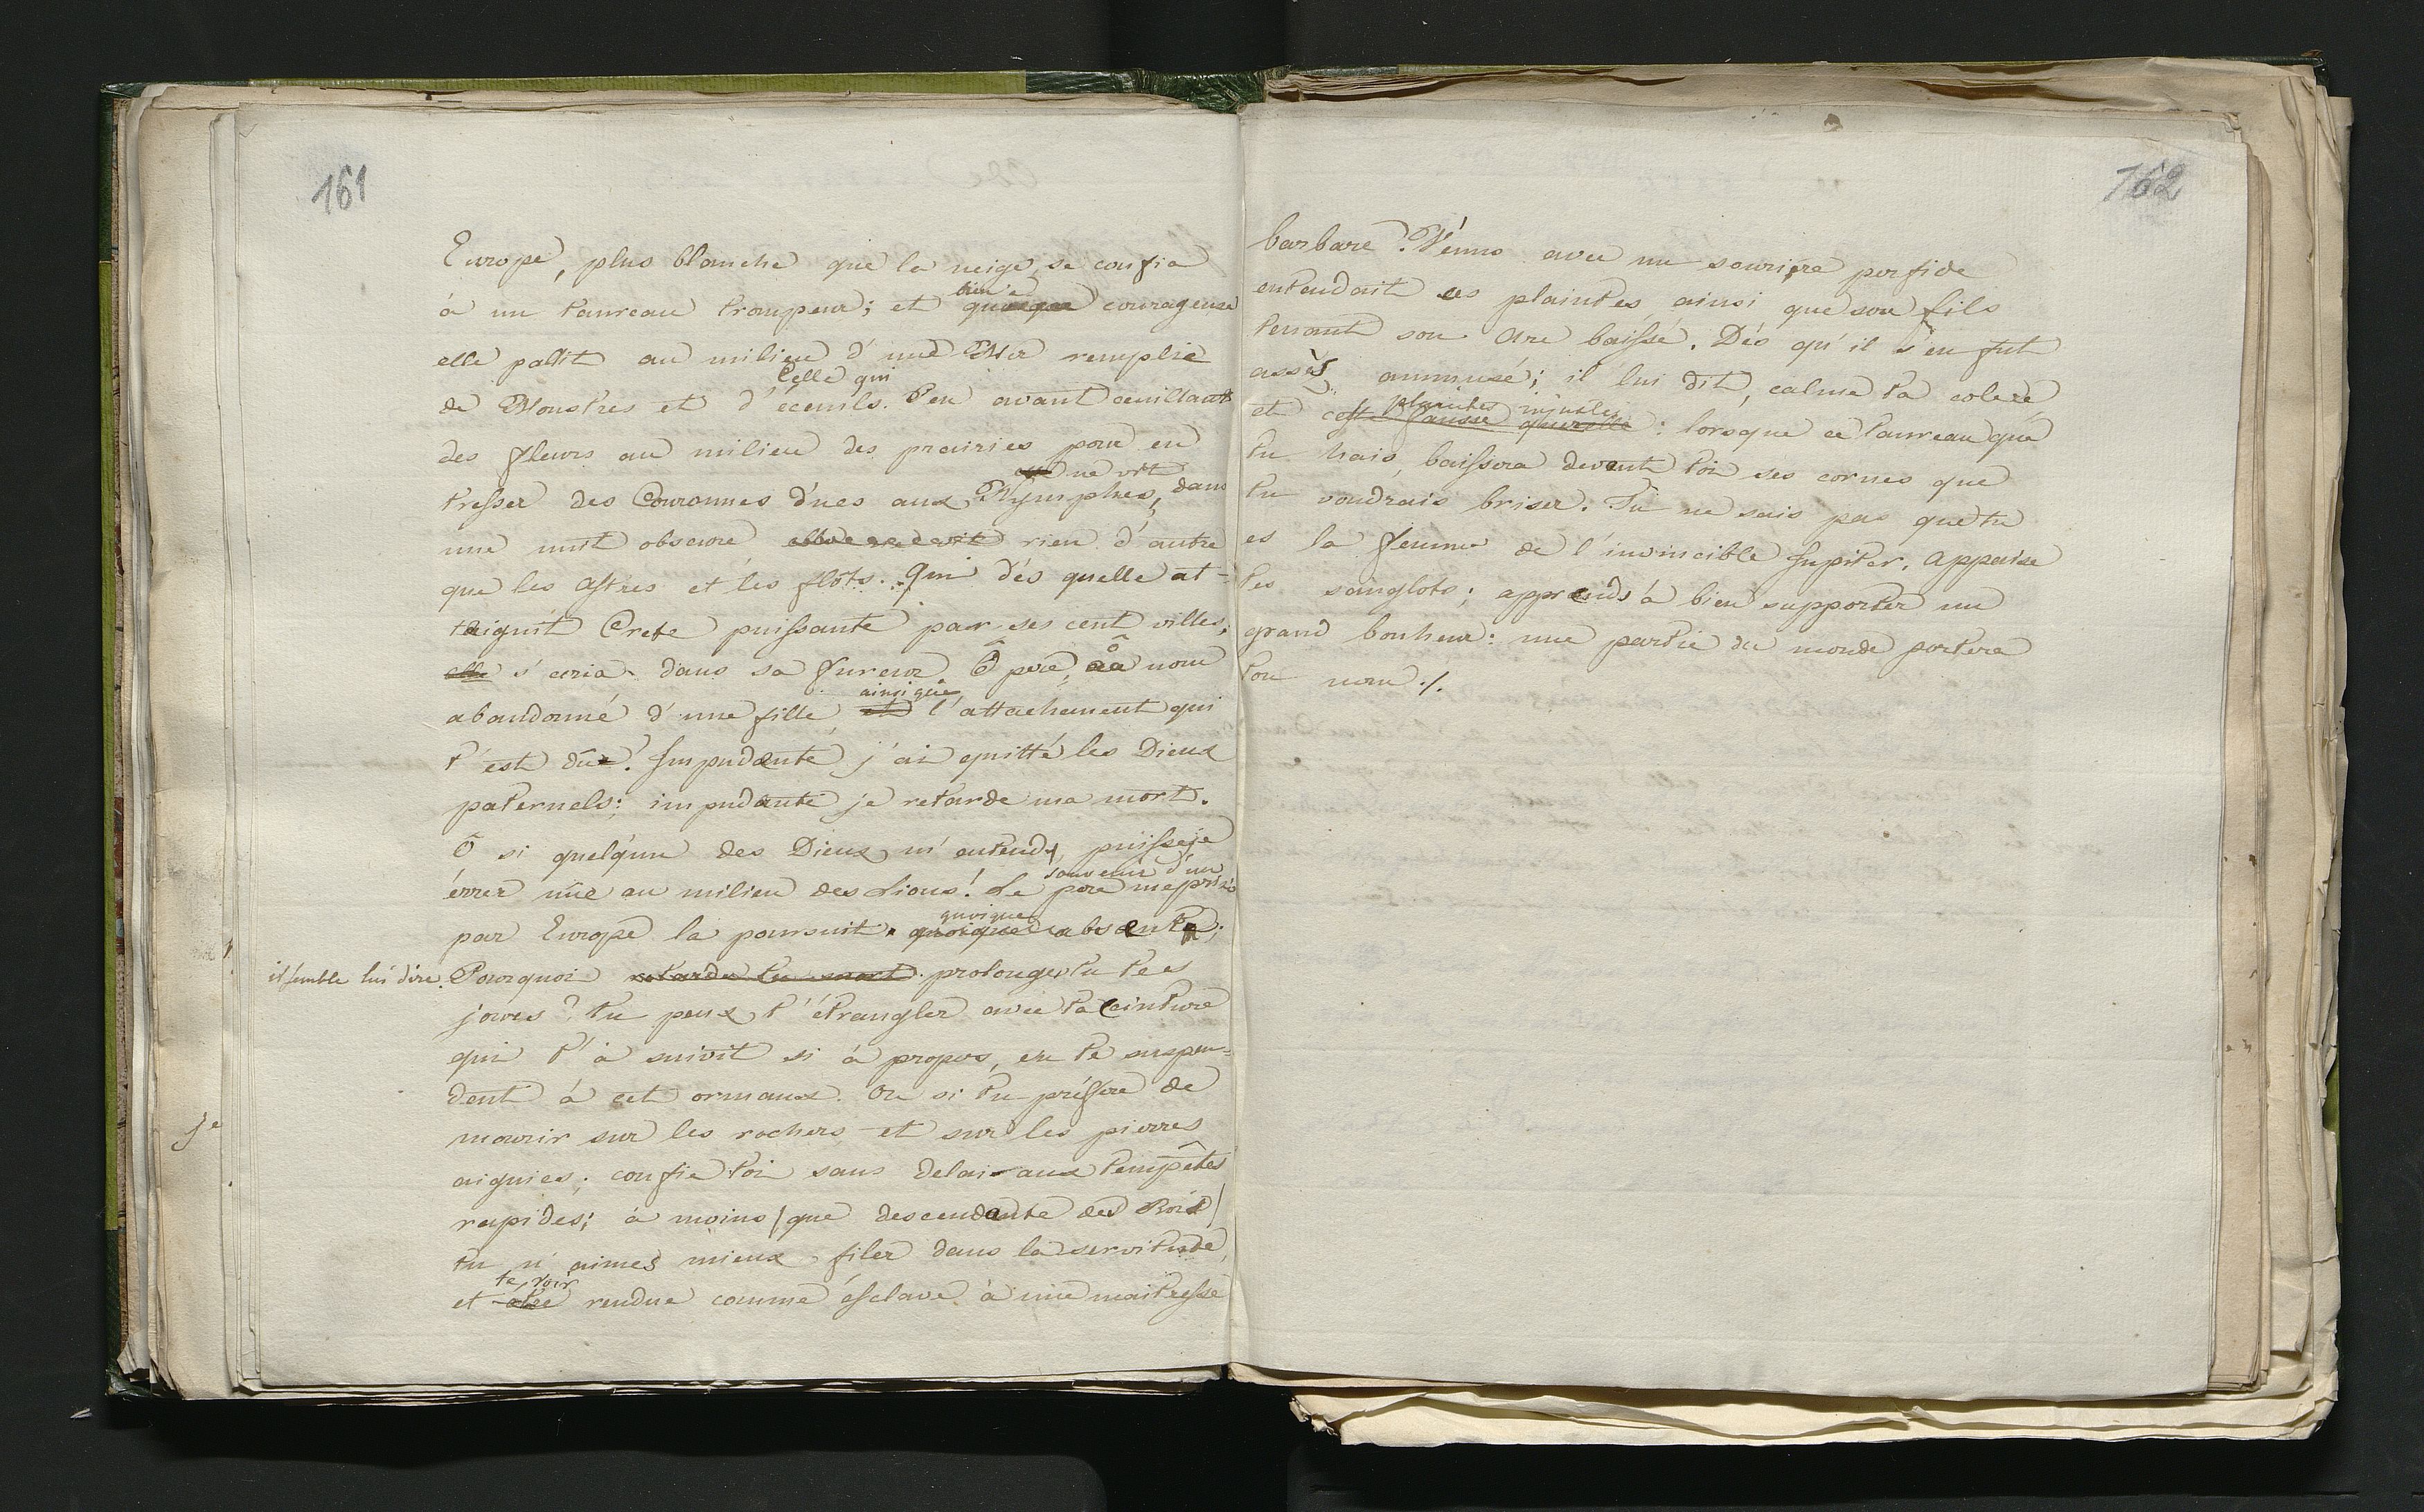 161
Europe, plus blanche que la neige, se confia
bien
à un taureau trompeur; et quoique courageuse
elle pallit au milieu d'une Mer remplie
Celle qui
de Monstres et d'écœuils. Peu avant ceuillant
des fleurs au milieu des prairies pour en
ne vit
tresser des Couronnes dues aux Nymphes, dans
une nuit obscure elle ne devit rien d'autre
que les astres et les flots. Qui dés quelle at-
taignit Crete puissante par ses cent villes,
elle s'ecria dans sa fureur Ô pere, ô nom
ainsi que
abandonné d'une fille, et l'attachement qui
t'est dû! Impudente j'ai quitté les Dieux
paternels; impudante je retarde ma mort.
Ô si quelqun des Dieux m'entend, puisseje
souvenir d'un
érrer nüe au milieu des Lions! Le pere meprisé
quoique
par Europe la poursuit. quoique absent;
il semble lui dire. Pourquoi retarde tu mort. prolonges tu tes
jours? tu peux t'étrangler avec ta Ceinture
qui t'à suivit si à propos, en te suspen-
dent à cet ormaux. Ou si tu préfére de
mourir sur les rochers et sur les pierres
je
aiguies; confie toi sans delai aux tempêtes
rapides; à moins (que descendante des Rois)
tu n'aimes mieux filer dans la servitude,
te voir
et rendue comme ésclave à une maitresse
162
barbare? Vénus avec un sourire perfide
entendait ces plaintes ainsi que son fils
tenant son arc baissé. Dés qu'il s'en fut
assès ammusé; il lui dit, calme ta colere
plaintes injustes
et cette fausse querelle: lorsque ce taureau que
tu hais, baissera devent toi ses cornes que
tu voudrais briser. Tu ne sais pas que tu
es la femme de l'invincible Jupiter, appaise
tes sanglots; apprends à bien supporter un
grand bonheur: une partie du monde portera
ton nom ./.